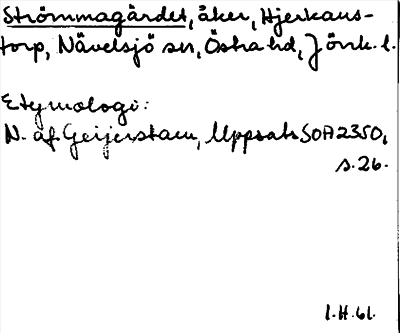 Strömmagärdet, åker, Hjerkans-
torp, Nävelsjö sn, Östra hd, Jönk. l.
Etymologi:
N. af Geijerstam, Uppsats SOA 2350,
s. 26.
I.H. 61.